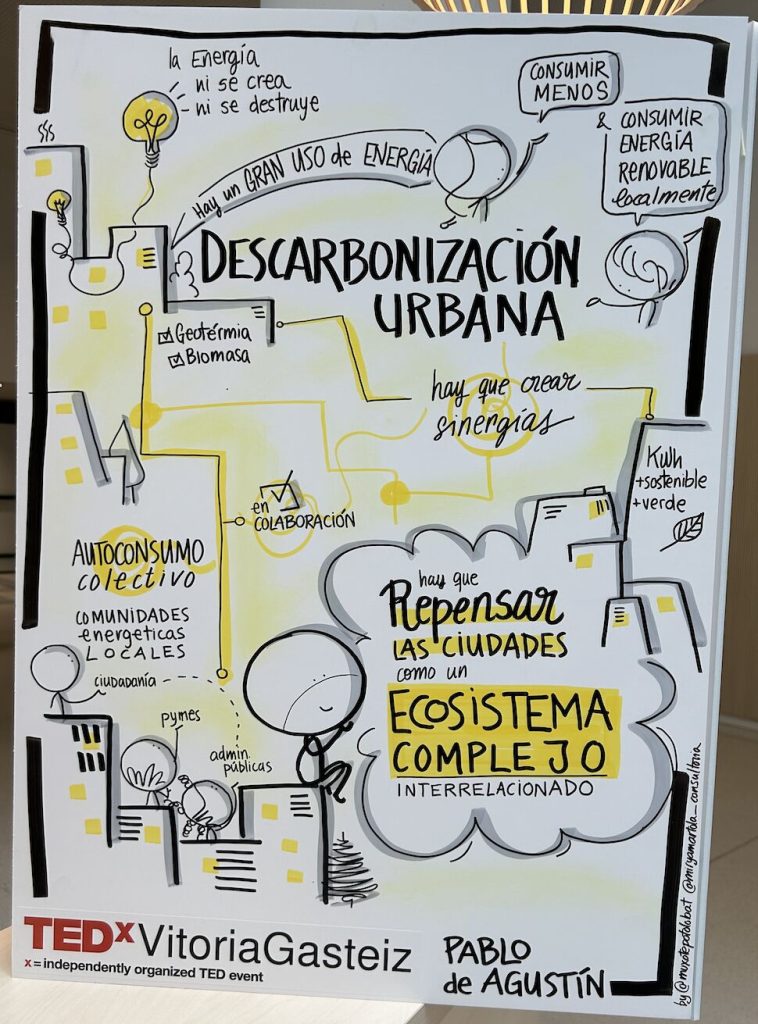 la Energía
ni se crea
ni se destruye
CONSUMIR
MENOS
& CONSUMIR
ENERGÍA
RENOVABLE
localmente
Hay un GRAN USO de ENERGÍA
DESCARBONIZACIÓN
URBANA
Geotérmia
Biomasa
hay que crear
sinergías
Kwh
+sostenible
+verde
en
COLABORACIÓN
AUTOCONSUMO
colectivo
COMUNIDADES
energeticas
LOCALES
ciudadanía
pymes
admin.
públicas
hay que
Repensar
LAS CIUDADES
como un
ECOSISTEMA
COMPLEJO
INTERRELACIONADO
TEDxVitoriaGasteiz
x = independently organized TED event
PABLO
de AGUSTÍN